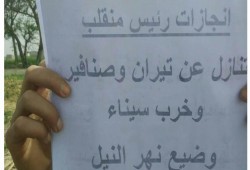 انجازات رئيس منقلب
تنازل عن تيران وصنافير
وخرب سيناء
وضيع نهر النيل